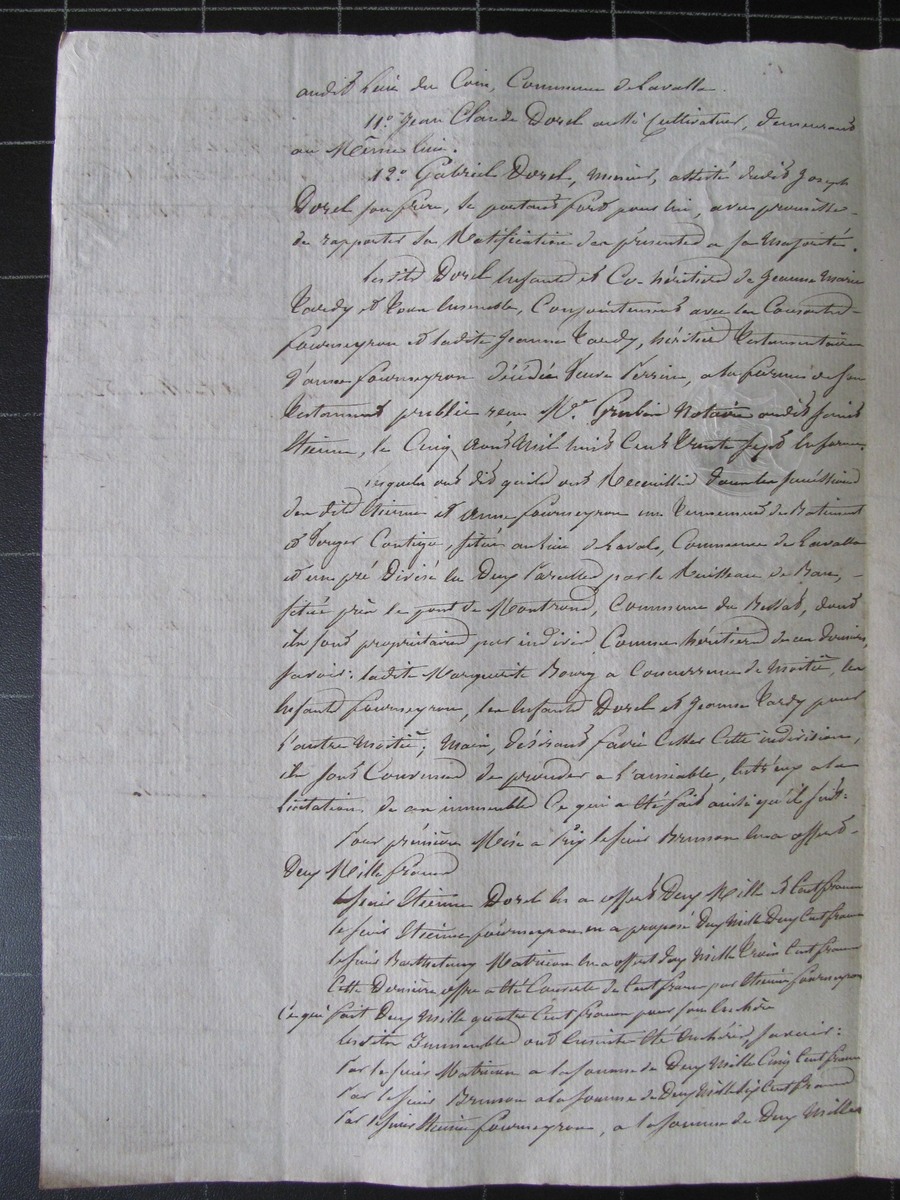 audit Lieu du Coin, Commune de Lavalla.
11.° Jean Claude Dorel aussi Cultivateur, demeurant
au Même lieu.
12.° Gabriel Dorel, mineur, assisté dudit Joseph
Dorel son frère, se portant fort pour lui, avec promesse
de rapporter sa Ratification des présentes a sa majorité.
Lesdits Dorel Enfants et Co-héritiers de Jeanne Marie
Tardy et tous Ensemble, Conjointement avec les Consorts
fourneyron et ladite Jeanne Tardy, héritiers testamentaires
d'anne fourneyron décédée Veuve Perrin, a la forme de son
testament public reçu M.e Grubis Notaire audit Saint
Etienne, le Cinq Août Mil huit Cent trente Sept En forme.
Lesquels ont dit qu'ils ont Recueilli dans les Successions
desdits Etienne et anne fourneyron un tennement de Batiment
et Verger Contigu, situé au lieu de Lavala, Commune de Lavalla
et un pré divisé En Deux Parcelles par le Ruisseau de Ban,
situé près le pont de Montrond, Commune du Bessat, dont
ils sont propriétaires par indivis Comme héritiers de ces derniers,
Savoir: ladite Marguerite Bourg a Concurrence de Moitié, les
Enfants fourneyron, les Enfants Dorel et Jeanne Tardy pour
L'autre Moitié; Mais, désirant faire Cesser Cette indivision,
ils sont Convenus de procéder a L'amiable, Entr'eux a la
Licitation de ces immeubles Ce qui a Eté fait ainsi qu'il suit:
Pour première Mise a Prix le sieur Brunon En a offert
Deux Mille francs
le sieur Etienne Dorel En a offert Deux Mille et Cent francs
le sieur Etienne fourneyron en a proposé Deux Mille Deux Cent francs
le sieur Barthelemy Matricon En a offert Deux Mille Trois Cent francs
Cette Dernière offre a Eté Couverte de Cent francs par Etienne fourneyron
Ce qui fait Deux Mille quatre Cent francs pour son Enchère
Lesdits Immeubles ont Ensuite Eté Enchéris, Savoir:
Par le sieur Matricon a la somme de Deux Mille Cinq Cent francs
Par le sieur Brunon a la somme de Deux Mille Six Cent francs
Par le sieur Etienne fourneyron, a la somme de Deux Milles